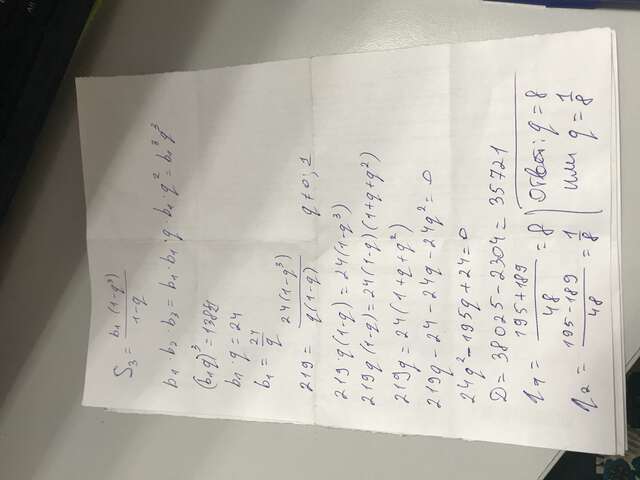 S₃ = b₁(1-q³)/1-q
b₁ · b₂ · b₃ = b₁ · b₁ · q · b₁ · q² = b₁³ q³
(b₁q)³ = 13824
b₁q = 24
b₁ = 24/q
219 = 24(1-q³)/q(1-q) q ≠ 0; 1
219q(1-q) = 24(1-q³)
219q(1-q) = 24(1-q)(1+q+q²)
219q = 24(1+q+q²)
219q - 24 - 24q - 24q² = 0
24q² - 195q + 24 = 0
D = 38025 - 2304 = 35721
q₁ = 195+189/48 = 8
q₂ = 195-189/48 = 1/8
Ответ: q = 8
или q = 1/8